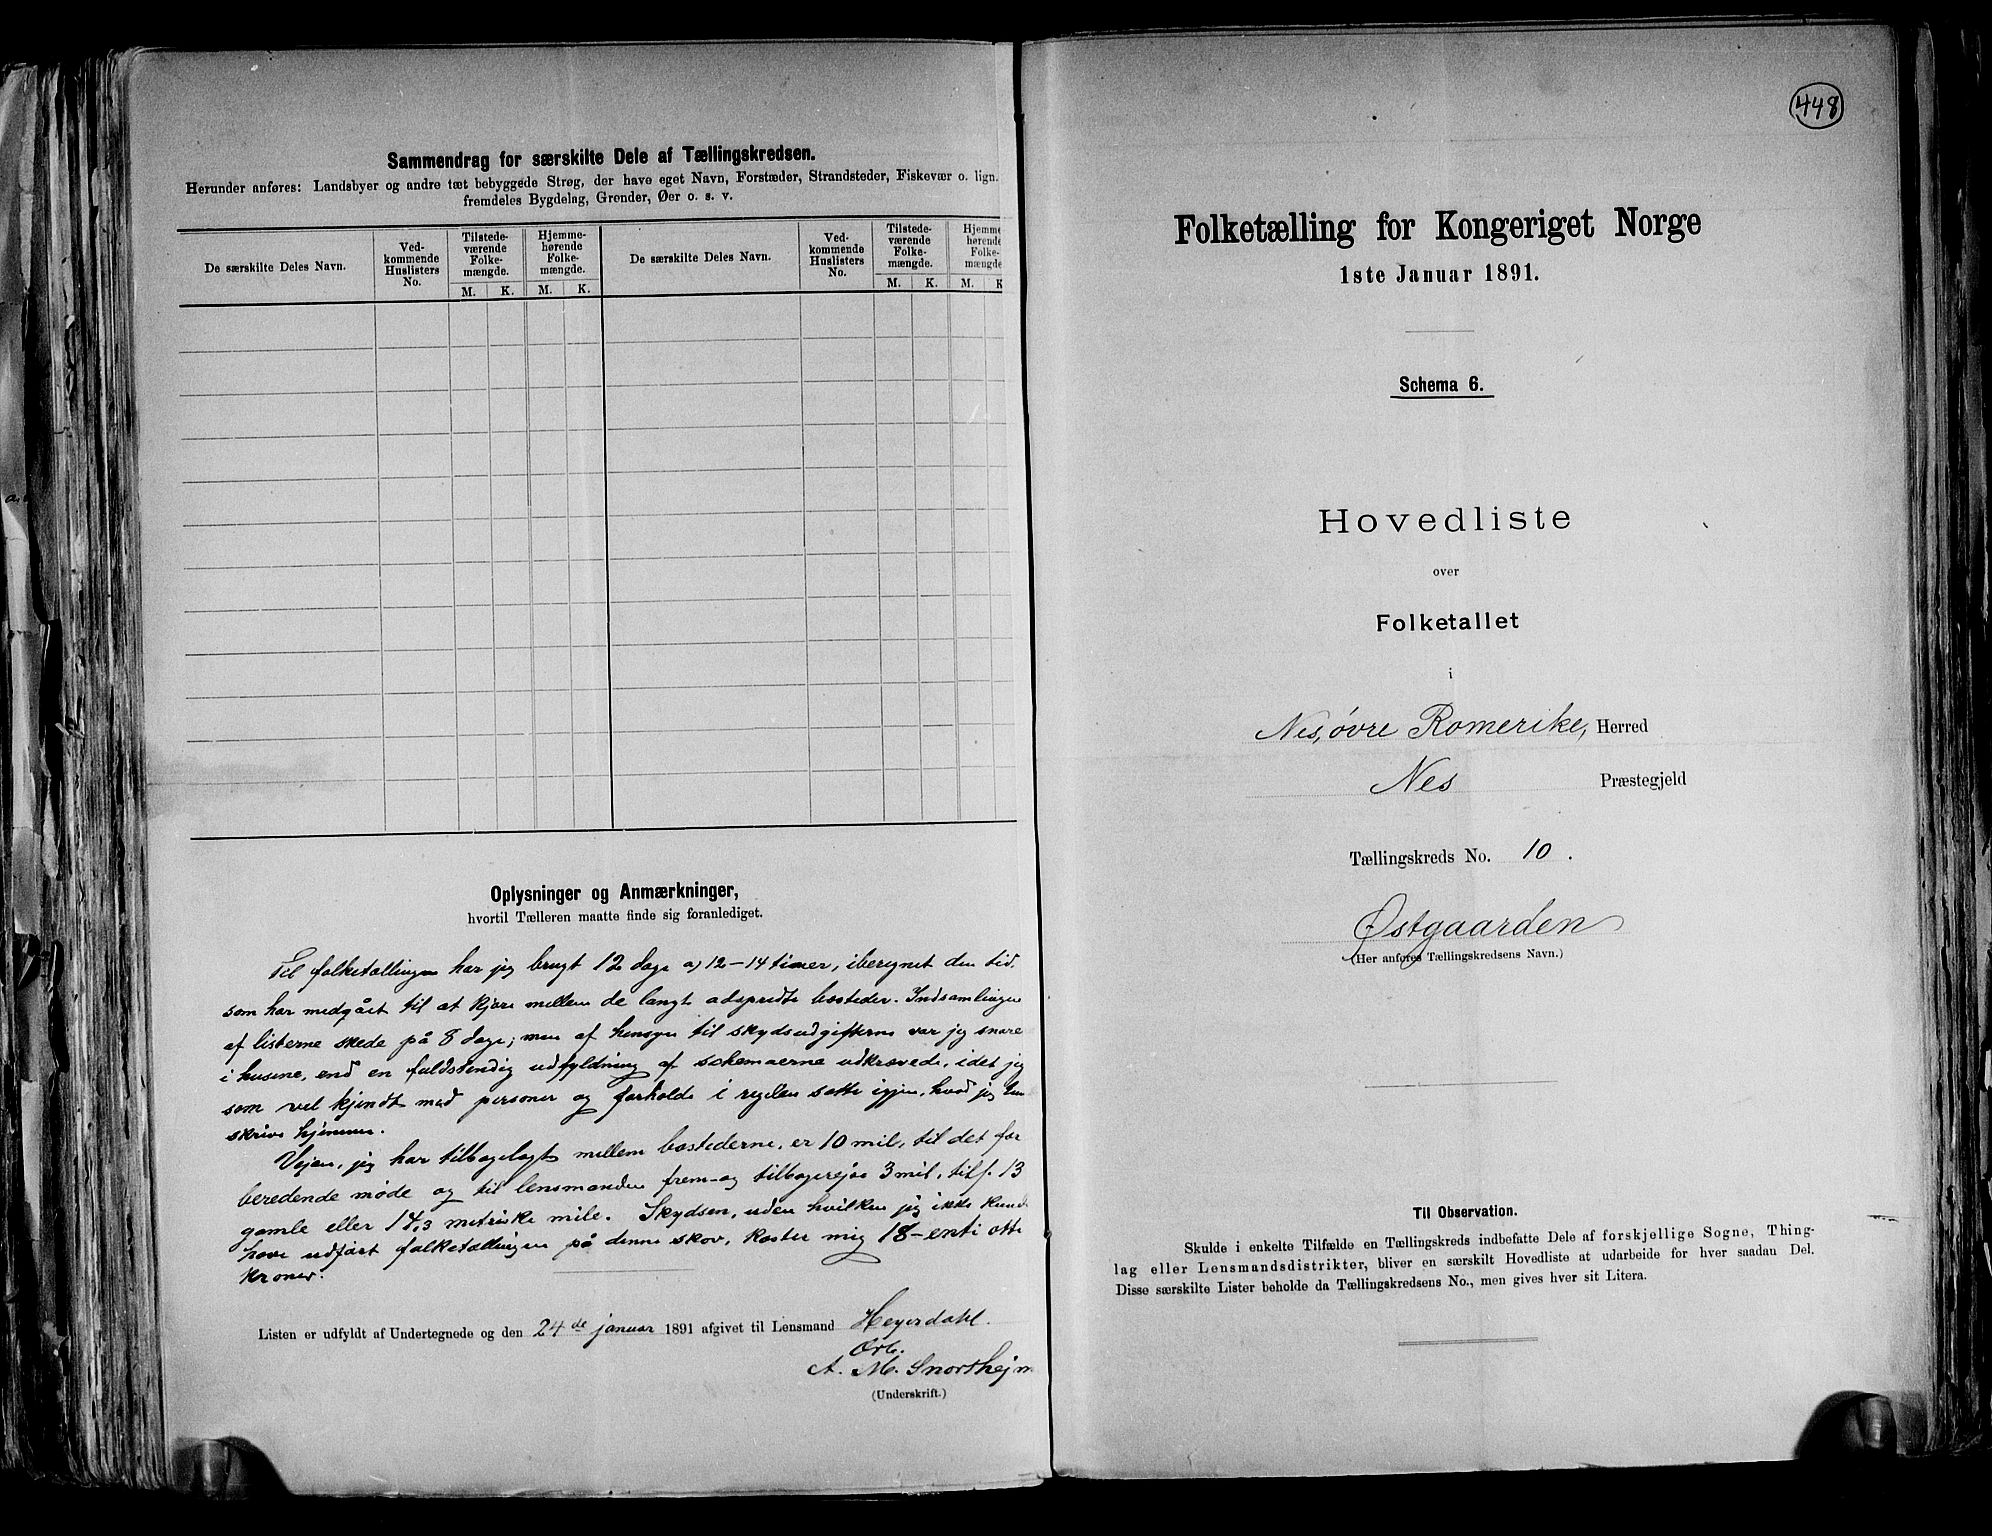 Sammendrag for særskilte Dele af Tællingskredsen.
Herunder anføres: Landsbyer og andre tæt bebyggede Strøg, der have eget Navn, Forstæder, Strandsteder, Fiskevær o. lign.
fremdeles Bygdelag, Grender, Øer o. s. v.
De særskilte Deles Navn.
Ved-
kommende
Huslisters
No.
Tilstede-
værende
Folke-
mængde.
Hjemme-
hørende
Folke-
mængde.
M. K. M. K.
De særskilte Deles Navn.
Ved-
kommende
Huslisters
No.
Tilstede-
værende
Folke-
mængde.
Hjemme
hørende
Folke-
mængde
M. K. M. K
Oplysninger og Anmærkninger,
hvortil Tælleren maatte finde sig foranlediget.
Til folketællingen har jeg brugt 12 dage a) 12-14 timer, iberegnet den tid,
som har medgået til at kjøre mellem de langt adspredte bosteder. Indsamlingen
af listerne skede på 8 dage; men af hensyn til skydsudgifterne var jeg snare
i husene, end en fuldstendig udfyldning af schemaerne udkrævede, idet jeg
som vel kjendt med personer og forholde i regelen satte igjen, hvad jeg
skrive hjemme.
Vejen, jeg har tilbagelagt mellem bostederne, er 10 mil, til det for
beredende møde og til lensmanden frem- og tilbagerejse 3 mil, tils. 13
gamle eller 14,3 metriske mile. Skydsen, uden hvilken jeg ikke kunde
have udført folketællingen på denne skov, koster mig 18-enti otte
kroner.
Listen er udfyldt af Undertegnede og den 24de januar 1891 afgivet til Lensmand Heyerdahl.
A. M. Snorshejm
(Underskrift.)
448
Folketælling for Kongeriget Norge
1ste Januar 1891.
Schema 6.
Hovedliste
over
Folketallet
i
Nes, øvre Romerike, Herred
Nes Præstegjeld
Tællingskreds No. 10.
Østgaarden
(Her anføres Tællingskredsens Navn.)
Til Observation.
Skulde i enkelte Tilfælde en Tællingskreds indbefatte Dele af forskjellige Sogne, Thing-
lag eller Lensmandsdistrikter, bliver en særskilt Hovedliste at udarbeide for hver saadan Del.
Disse særskilte Lister beholde da Tællingskredsens No., men gives hver sit Litera.